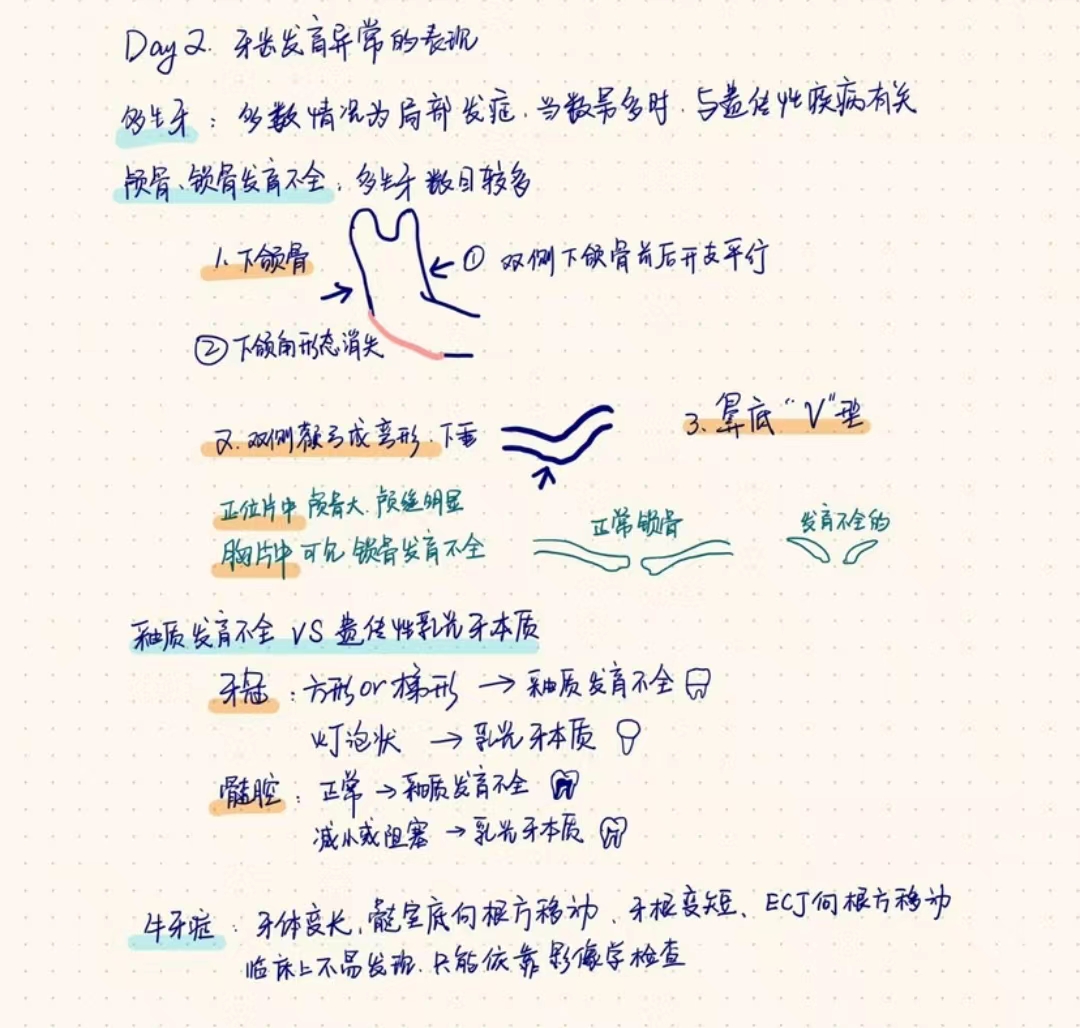 Day 2. 牙齿发育异常的表现
多生牙：多数情况为局部发症，当数易多时，与遗传性疾病有关
颅骨、锁骨发育不全：多生牙数目较多
1. 下颌骨
① 双侧下颌骨前后升支平行
② 下颌角形态消失
2. 双侧颧弓成弯形，下垂
3. 鼻底“V”型
正位片中 颅骨大，颅缝明显
胸片中 可见 锁骨发育不全
正常锁骨
发育不全的
釉质发育不全 VS 遗传性乳光牙本质
牙冠：方形or梯形 → 釉质发育不全
灯泡状 → 乳光牙本质
髓腔：正常 → 釉质发育不全
减小或阻塞 → 乳光牙本质
牛牙症：牙体变长，髓室底向根方移动、牙根变短、ECJ向根方移动
临床上不易发现，只能依靠影像学检查